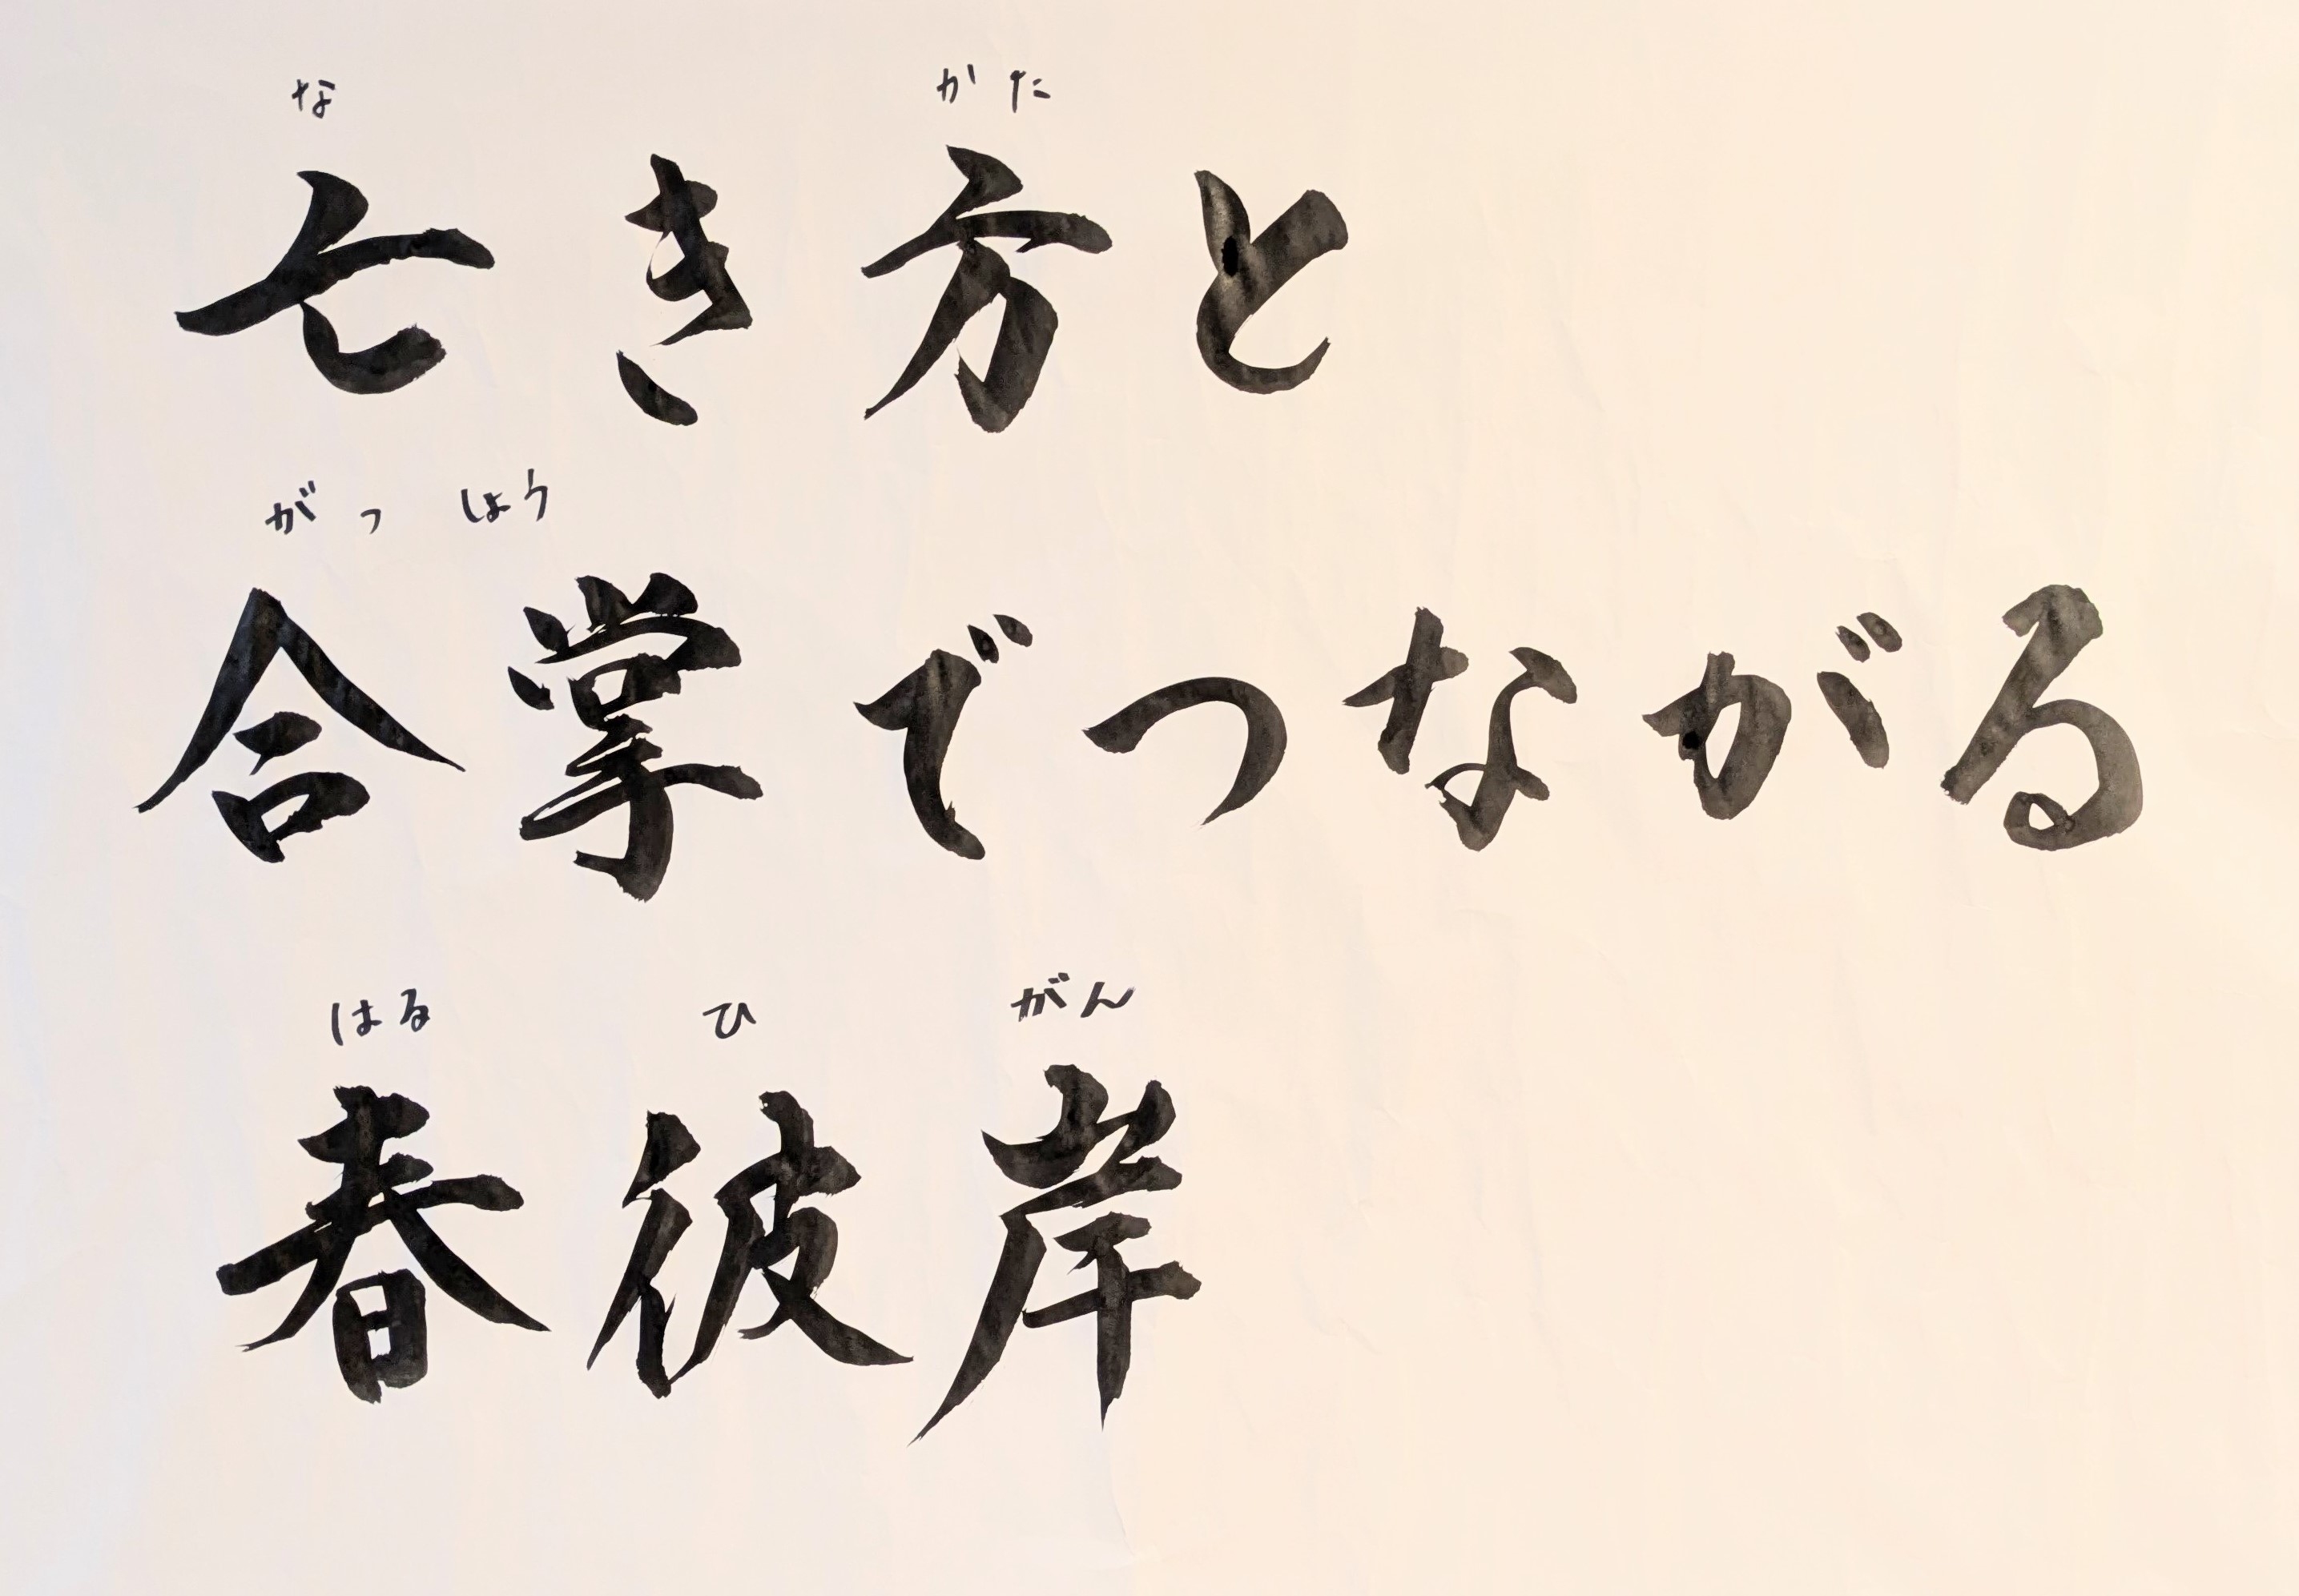 な かた
亡き方と
がっ しょう
合掌でつながる
はる ひ がん
春彼岸